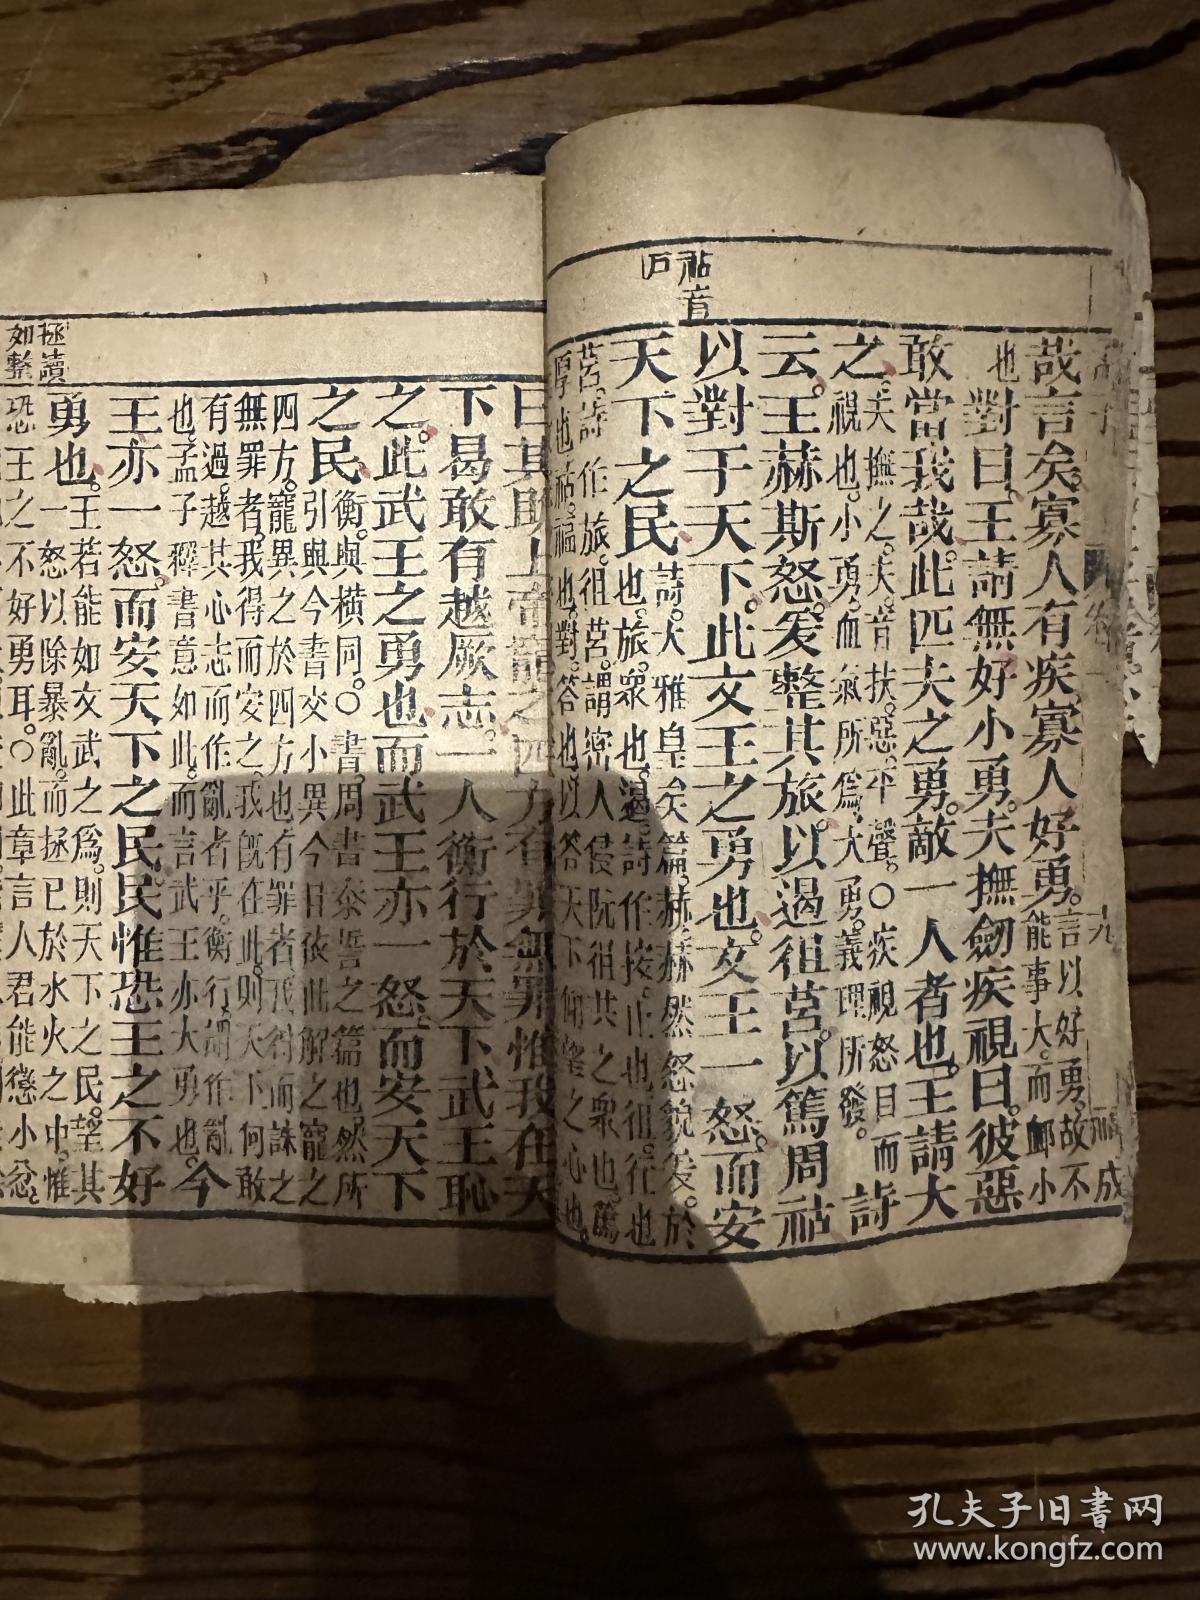 祜音
戶
十九
哉言矣。寡人有疾。寡人好勇。言以好勇。故不
能事大。而卹小
也對曰。王請無好小勇。夫撫劒疾視曰。彼惡
敢當我哉。此匹夫之勇。敵一人者也。王請大
之。夫撫之夫。音扶。惡。平聲。〇疾視。怒目而
視也。小勇。血氣所爲。大勇。義理所發。詩
云。王赫斯怒。爰整其旅。以遏徂莒。以篤周祜
以對于天下。此文王之勇也。文王一怒。而安
天下之民。詩。大雅皇矣篇。赫。赫然怒貌。爰。於
也。旅。衆也。遏。詩作按。止也。徂。往也
莒。詩作旅。徂莒。謂密人侵阮徂共之衆也。篤
厚也。祜。福也。對。答也。以答天下仰望之心也。
曰其助上帝。寵之四方。有罪無罪。惟我在。天
下曷敢有越厥志。一人衡行於天下。武王恥
之。此武王之勇也。而武王亦一怒。而安天下
之民。衡。與橫同。〇書。周書泰誓之篇也。然所
引與今書文小異。今且依此解之。寵之
四方。寵異之於四方也。有罪者。我得而誅之
無罪者。我得而安之。我旣在此。則天下何敢
有過越其心志而作亂者乎。衡行。謂作亂
也。孟子釋書意如此。而言武王亦大勇也。今
王亦一怒。而安天下之民。民惟恐王之不好
拯讀
如整
勇也。王若能如文武之爲。則天下之民。望其
一怒以除暴亂。而拯己於水火之中。惟
恐王之不好勇耳。〇此章言人君能懲小忿。
孔夫子旧书网
www.kongfz.com